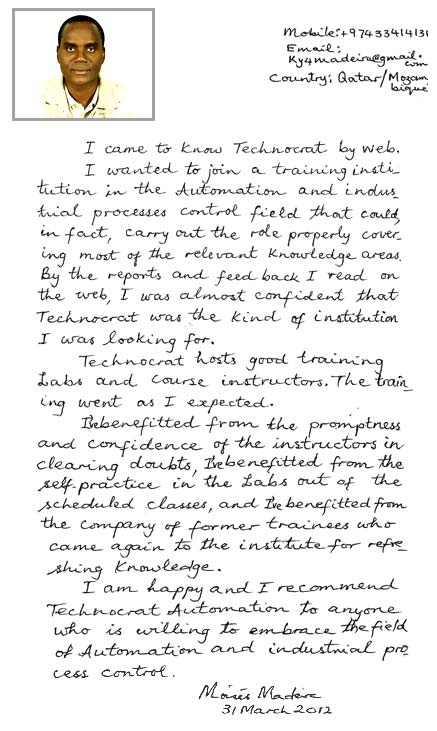 Mobile:+97433414131
Email:
Ky4madeira@gmail.
com
Country: Qatar/Mozam
bique
I came to know Technocrat by web.
I wanted to join a training insti-
tution in the Automation and indus-
trial processes control field that could,
in fact, carry out the role properly cover-
ing most of the relevant knowledge areas.
By the reports and feed back I read on
the web, I was almost confident that
Technocrat was the kind of institution
I was looking for.
Technocrat hosts good training
Labs and course instructors. The train-
ing went as I expected.
I've benefitted from the promptness
and confidence of the instructors in
clearing doubts, I've benefitted from the
self-practice in the Labs out of the
scheduled classes, and I've benefitted from
the company of former trainees who
came again to the institute for refre-
shing knowledge.
I am happy and I recommend
Technocrat Automation to anyone
who is willing to embrace the field
of Automation and industrial pro
cess control.
Moisés Madeira
31 March 2012